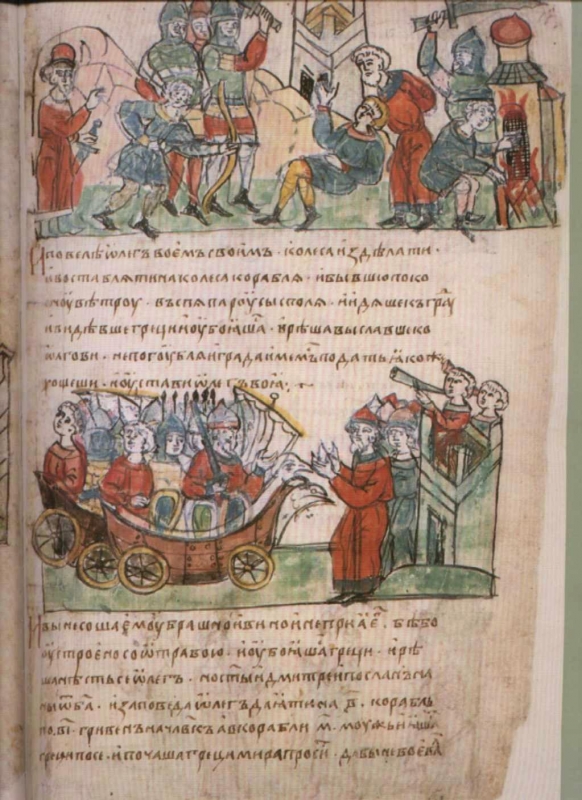 И повелѣ ѡлегъ воемъ своимъ · колеса издѣлати ·
и воставляти на колеса корабля · и бывшю поко
сноу вѣтроу · въспя пароусы с поля · и идяше к граⷣу
и видѣвше греци и оубоꙗшаⷭ · и рѣша выславше ко
ѡлгови · не погоублаи града имемъ по дать ꙗкоⷤ
хощеши · и оустави ѡлегъ вои ·
И вынесоша емоу брашно и вино и не приа еⷢ · бѣ бо
оустроено со ѿтравою · и оубоꙗшаⷭ греци · и рѣ
ша нѣсть се ѡлегъ · но ст҃ыи дмитреи посланъ на
ны ѿ б҃а · и заповеда ѡлегъ даꙗти на в҃ · корабль
по в҃і · гривенъ на чл҃вкъ а в корабли м҃ · моужь и ꙗшаⷭ
греци по се · и почаша греци мира просиⷮ · дабы не воеваⷧ